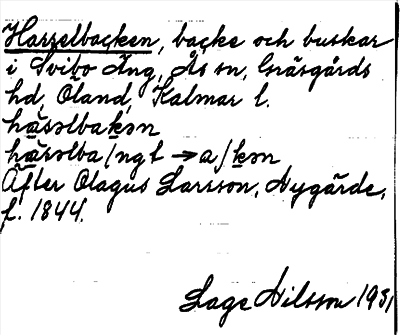 Hasselbacken, backe och buskar
i Svibo Äng, Ås sn, Gräsgårds
hd, Öland, Kalmar l.
häsəlbakən
häsəlba/ngt → a/kən
Äfter Olagus Larsson, Nygärde,
f. 1844.
Lage Nilsson 1931